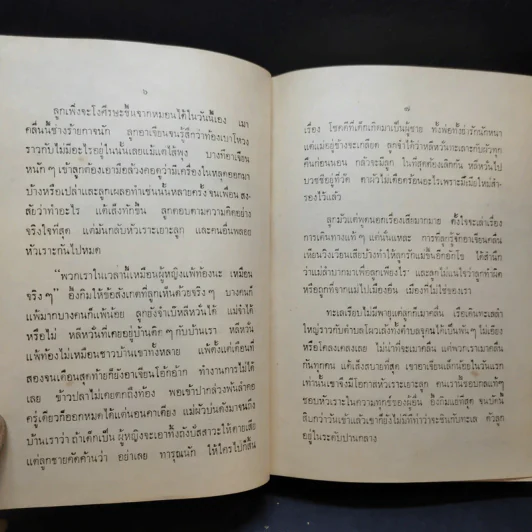 ๖
ลูกเพิ่งจะโงศีรษะขึ้นจากหมอนได้ในวันนี้เอง เมา
คลื่นนี้ช่างร้ายกาจนัก ลูกอาเจียนจนรู้สึกว่าท้องเบาโหวง
ราวกับไม่มีอะไรอยู่ในนั้นเลยแม้แต่ไส้พุง บางทีอาเจียน
หนัก ๆ เข้าลูกต้องเอามือล้วงคอดูว่ามีเครื่องในหลุดออกมา
บ้างหรือเปล่าและลูกเผลอทำเช่นนั้นหลายครั้ง จนเพื่อนสง-
สัยว่าทำอะไร แต่เส็งทักขึ้น ลูกตอบตามความคิดอย่าง
จริงใจที่สุด แต่มันกลับหัวเราะเยาะลูก และคนอื่นพลอย
หัวเราะกันไปหมด
"พวกเราในเวลานี้เหมือนผู้หญิงแพ้ท้องนะ เหมือน
จริง ๆ" อั้งกิมให้ข้อสังเกตที่ลูกเห็นด้วยจริง ๆ บางคนก็
แพ้มากบางคนก็แพ้น้อย ลูกยังจำเป็นหลีหวันได้ แม่จำได้
หรือไม่ หลีหวันที่เคยอยู่บ้านติด ๆ กับบ้านเรา หลีหวัน
แพ้ท้องไม่เหมือนชาวบ้านเขาทั้งหลาย แพ้ตั้งแต่เดือนที่
สองจนเดือนสุดท้ายก็ยังอาเจียนโอ้กอ้าก ทำงานการไม่ได้
เลย ข้าวปลาไม่เคยตกถึงท้อง พอเข้าปากล่วงพ้นลำคอ
ครู่เดียวก็ออกหมด ได้แต่นอนคาเตียง แม่ผัวบ่นดังมาจนถึง
บ้านเราว่า ถ้าเด็กเป็นผู้หญิงจะเอาทิ้งถังปัสสาวะให้ตายเสีย
แต่ลูกชายคัดค้านว่า อย่าเลย ทารุณนัก ให้ใครไปก็สิ้น
๗
เรื่อง โชคดีที่เด็กเกิดมาเป็นผู้ชาย ทั้งพ่อทั้งย่ารักนักหนา
แต่แม่อยู่ข้างจะเกลือด ลูกจำได้ว่าหลีหวันทะเลาะกับผัวทุก
คืนก่อนนอน กลัวจะมีลูก ในที่สุดต้องเลิกกัน หลีหวันไป
บวชชีอยู่ที่วัด ตาผัวไม่เดือดร้อนอะไรเพราะมีเมียใหม่สำ-
รองไว้แล้ว
ลูกมัวแต่พูดนอกเรื่องเสียมากมาย ตั้งใจจะเล่าเรื่อง
การเดินทางแท้ ๆ แต่นั่นแหละ การที่ลูกรู้จักอาเจียนคลื่น
เหียนวิงเวียนเสียบ้างทำให้ลูกรักแม่ขึ้นอีกอักโข ได้สำนึก
ว่าแม่ลำบากมาเพื่อลูกเพียงไร และลูกไม่แน่ใจว่าลูกทำผิด
หรือถูกที่จากแม่ไปเมืองอื่น เมืองที่ไม่ใช่ของเรา
ทะเลเรียบไม่มีพายุแต่ลูกก็เมาคลื่น เรือเดินทะเลลำ
ใหญ่ราวกับตำบลโผวเล้งทั้งตำบลจุคนได้เป็นพัน ๆ ไม่เอียง
หรือโคลงเคลงเลย ไม่น่าที่จะเมาคลื่น แต่พวกเราเมาคลื่น
กันทุกคน แต่เส็งสบายที่สุด เขาอาเจียนเล็กน้อยในวันแรก
เท่านั้นเขาจึงมีโอกาสหัวเราะเยาะลูก คนเรานี้ชอบกลแท้ ๆ
ชอบหัวเราะในความทุกข์ของผู้อื่น อั้งกิมแย่ที่สุด จนบัดนี้
สิบกว่าวันเข้าแล้วเขาก็ยังไม่มีทีท่าว่าจะชินกับทะเล ตัวลูก
อยู่ในระดับปานกลาง